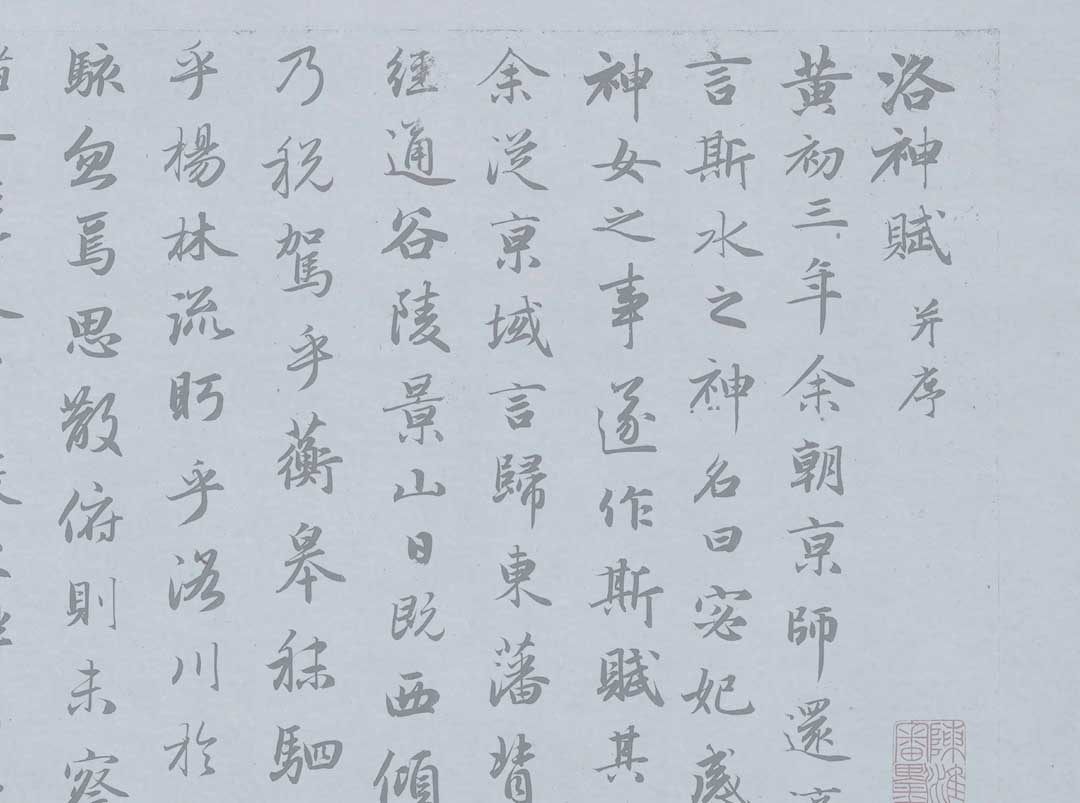 洛神賦 并序
黃初三年余朝亰師還
言斯水之神名曰宓妃感
神女之事遂作斯賦其
余從亰域言歸東藩背
經通谷陵景山日既西傾
乃稅駕乎蘅皋秣駟
乎楊林流眄乎洛川於
駭忽焉思散俯則未察
陳淮